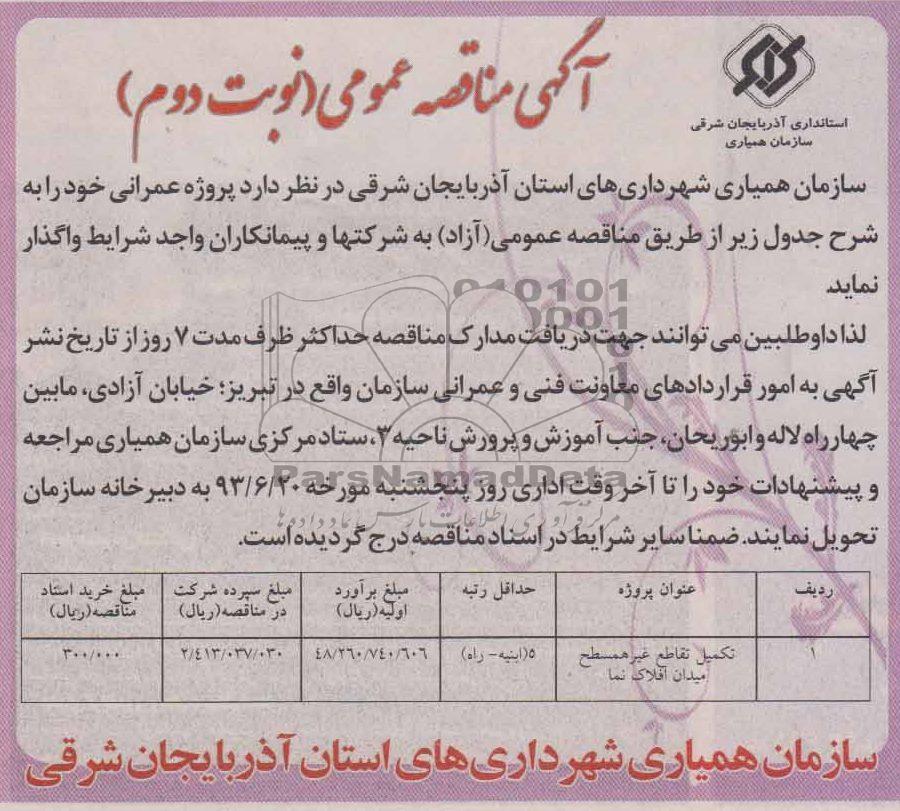 استانداری آذربایجان شرقی
سازمان همیاری
آگهی مناقصه عمومی (نوبت دوم)
سازمان همیاری شهرداری‌های استان آذربایجان شرقی در نظر دارد پروژه عمرانی خود را به
شرح جدول زیر از طریق مناقصه عمومی(آزاد) به شرکتها و پیمانکاران واجد شرایط واگذار
نماید.
لذا داوطلبین می توانند جهت دریافت مدارک مناقصه حداکثر ظرف مدت ۷ روز از تاریخ نشر
آگهی به امور قراردادهای معاونت فنی و عمرانی سازمان واقع در تبریز؛ خیابان آزادی، مابین
چهارراه لاله و ابوریحان، جنب آموزش و پرورش ناحیه ۳، ستاد مرکزی سازمان همیاری مراجعه
و پیشنهادات خود را تا آخر وقت اداری روز پنجشنبه مورخه ۹۳/۶/۲۰ به دبیرخانه سازمان
تحویل نمایند. ضمنا سایر شرایط در اسناد مناقصه درج گردیده است.
010101
0001
ParsNamadData
مرکز فرآوری اطلاعات پارس نماد داده ها
ردیف عنوان پروژه حداقل رتبه مبلغ برآورد اولیه(ریال) مبلغ سپرده شرکت در مناقصه(ریال) مبلغ خرید اسناد مناقصه(ریال)
۱ تکمیل تقاطع غیرهمسطح میدان افلاک نما ۵(ابنیه- راه) ۴۸/۲۶۰/۷۴۰/۶۰۶ ۲/۴۱۳/۰۳۷/۰۳۰ ۳۰۰/۰۰۰
سازمان همیاری شهرداری‌های استان آذربایجان شرقی